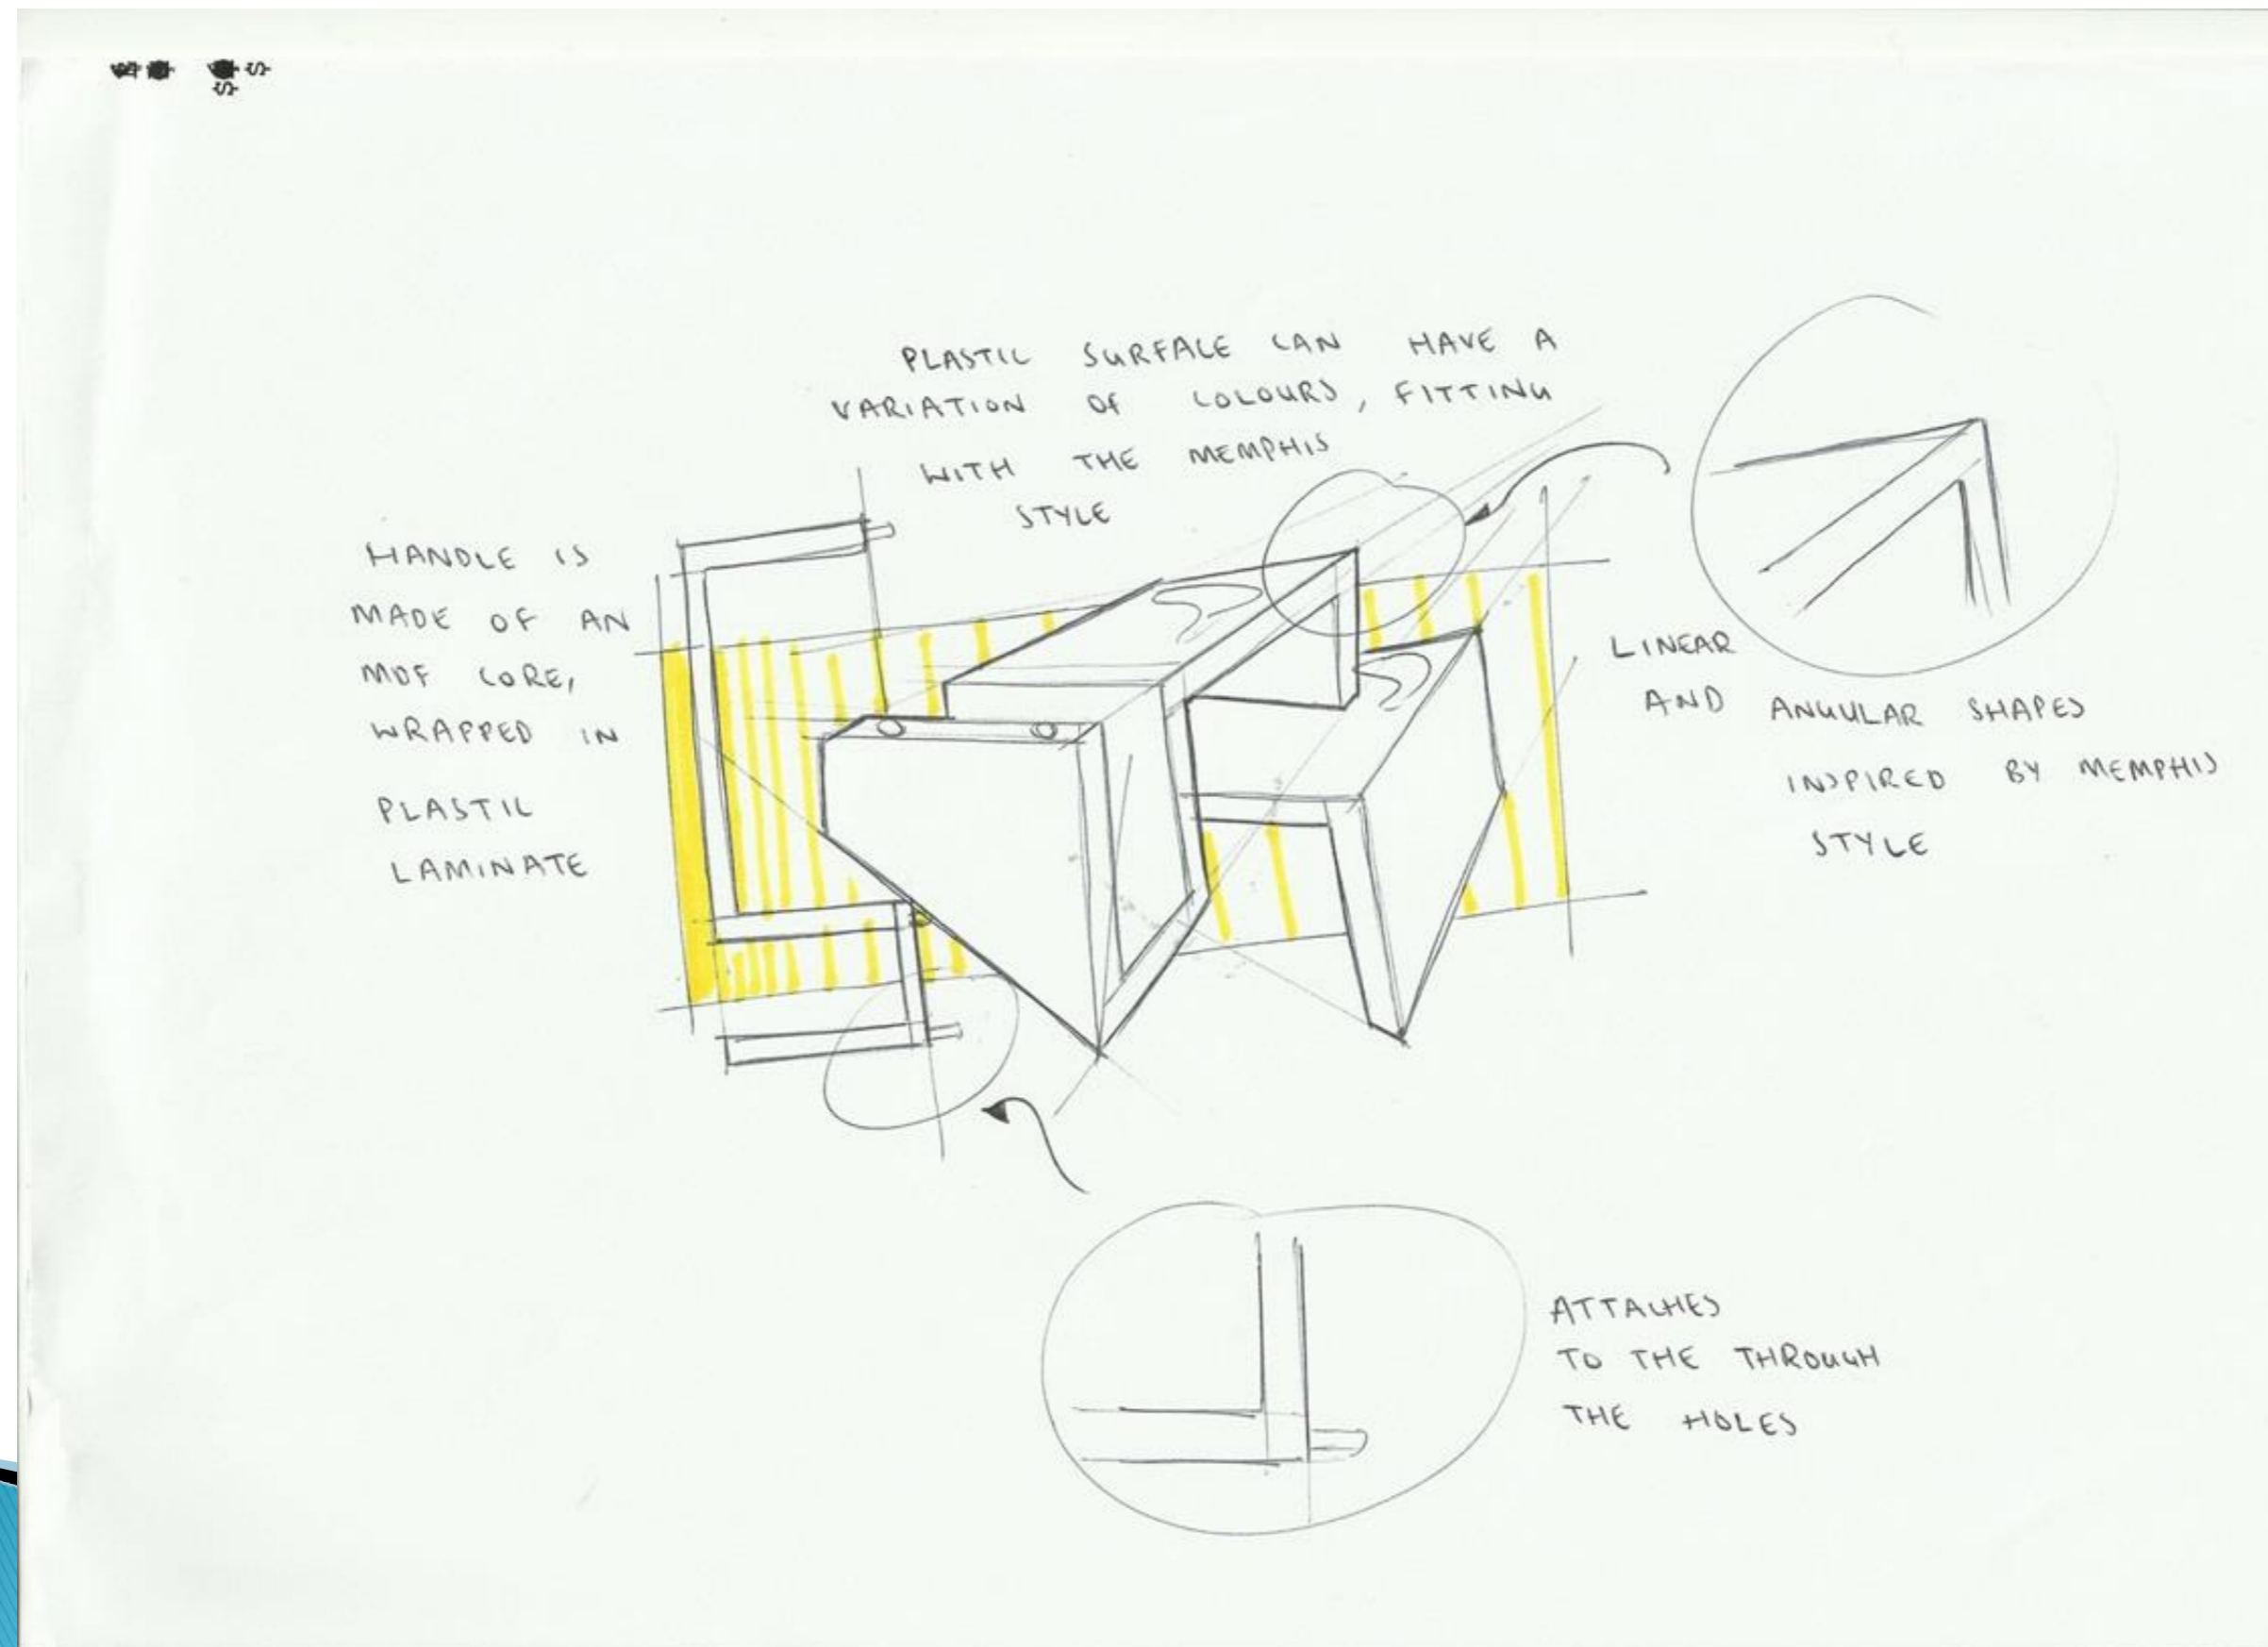 PLASTIC SURFACE CAN HAVE A
VARIATION OF COLOURS, FITTING
WITH THE MEMPHIS
STYLE
HANDLE IS
MADE OF AN
MDF CORE,
WRAPPED IN
PLASTIC
LAMINATE
LINEAR
AND ANGULAR SHAPES
INSPIRED BY MEMPHIS
STYLE
ATTACHES
TO THE THROUGH
THE HOLES